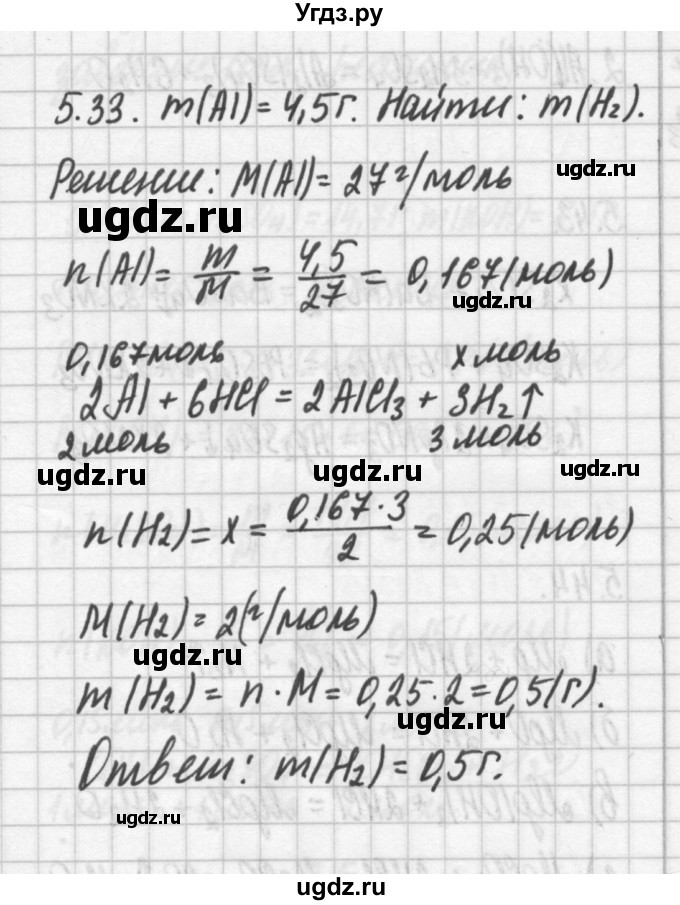 Угдз.ру
5.33. m(Al) = 4,5г. Найти: m(H₂).
Решение: M(Al) = 27 г/моль
ugdz.ru
ugdz.ru
n(Al) = m/M = 4,5/27 = 0,167(моль)
ugdz.ru
0,167моль x моль
2Al + 6HCl = 2AlCl₃ + 3H₂↑
2моль 3 моль
ugdz.ru ugdz.ru ugdz.ru
n(H₂) = x = 0,167·3/2 = 0,25(моль)
M(H₂) = 2(г/моль)
ugdz.ru
m(H₂) = n · M = 0,25·2 = 0,5(г).
ugdz.ru
Ответ: m(H₂) = 0,5г.
ugdz.ru
ugdz.ru